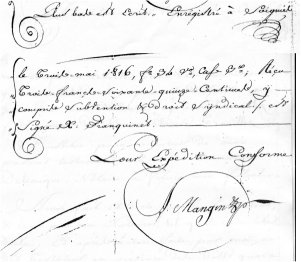 Plus bas est écrit. Enregistré à
le Trois mai 1816, fo 34 Vo, Case 3e; Reçu
Trois francs soixante quinze Centimes, y
compris Subvention & droit Syndical. est
Signé X. Franquinet.
Pour Expédition Conforme
Mangin